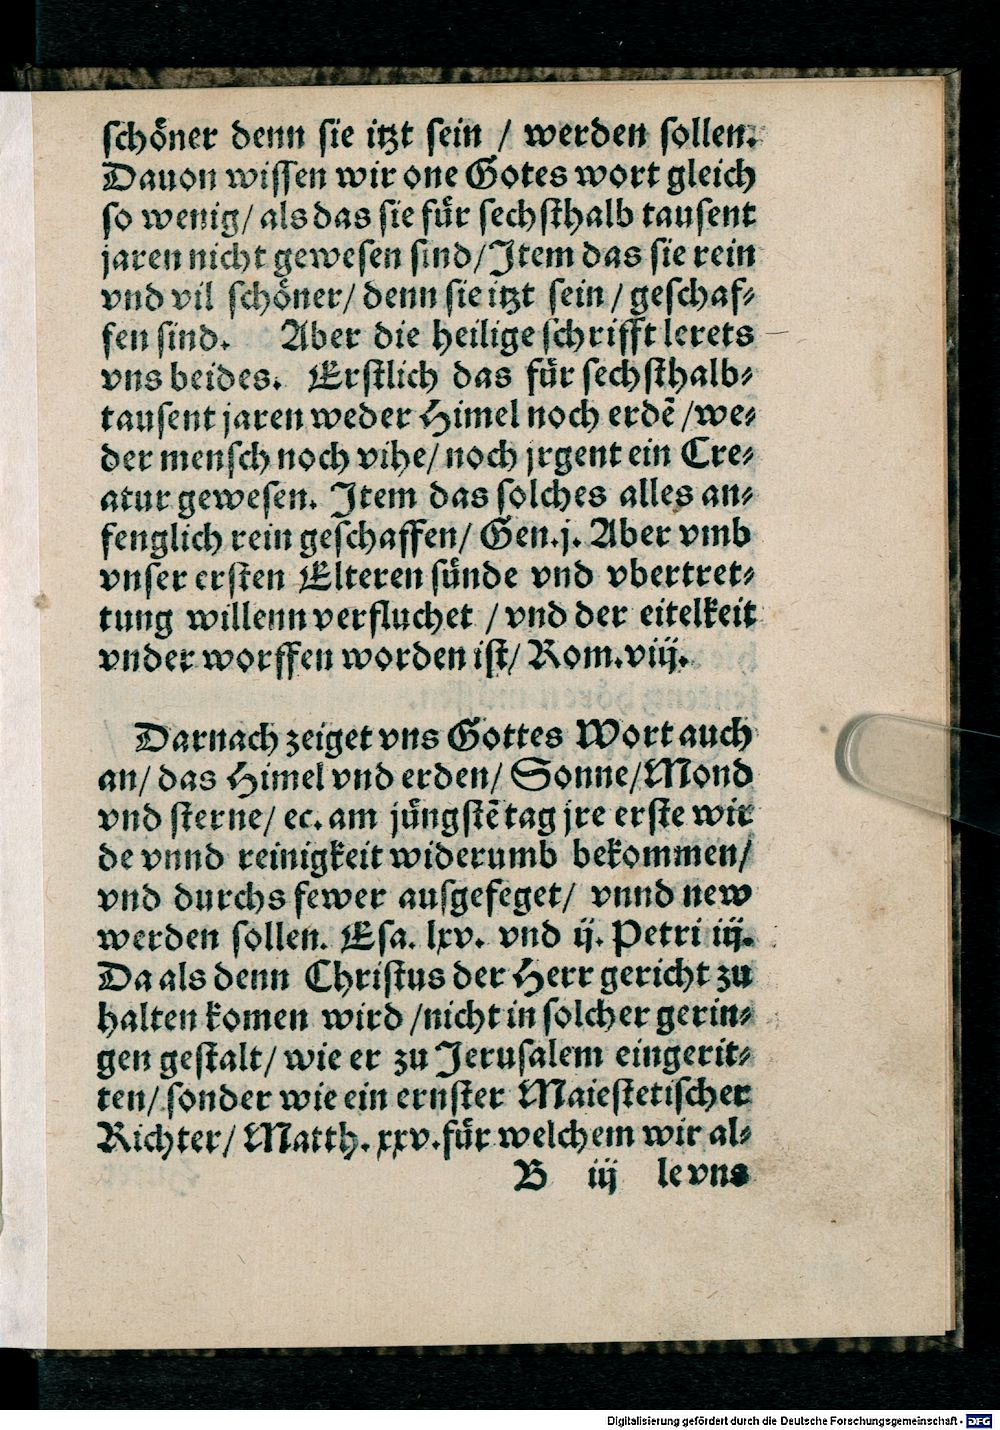 schöner denn sie itzt sein / werden sollen.
Dauon wissen wir one Gotes wort gleich
so wenig/ als das sie für sechsthalb tausent
jaren nicht gewesen sind/ Item das sie rein
vnd vil schöner/ denn sie itzt sein / geschaf⸗
fen sind. Aber die heilige schrifft lerets
vns beides. Erstlich das für sechsthalb⸗
tausent jaren weder Himel noch erdē /we⸗
der mensch noch vihe/ noch jrgent ein Cre⸗
atur gewesen. Item das solches alles an⸗
fenglich rein geschaffen/ Gen.j. Aber vmb
vnser ersten Elteren sünde vnd vbertret⸗
tung willenn verfluchet / vnd der eitelkeit
vnder worffen worden ist/ Rom.viij.
Darnach zeiget vns Gottes Wort auch
an/ das Himel vnd erden/ Sonne/ Mond
vnd sterne/ ec. am jüngstē tag jre erste wir
de vnnd reinigkeit widerumb bekommen/
vnd durchs fewer ausgefeget/ vnnd new
werden sollen. Esa. lxv. vnd ij. Petri iij.
Da als denn Christus der Herr gericht zu
halten komen wird /nicht in solcher gerin⸗
gen gestalt/ wie er zu Jerusalem eingerit⸗
ten/ sonder wie ein ernster Maiestetischer
Richter/ Matth. xxv. für welchem wir al⸗
B iij le vns
Digitalisierung gefördert durch die Deutsche Forschungsgemeinschaft - DFG